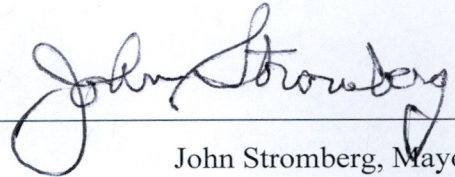 John Stromberg
John Stromberg, Mayo